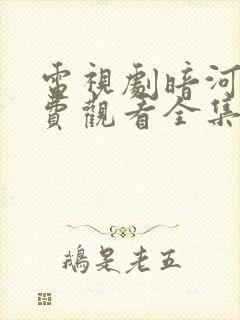 電視劇暗河
費觀看全集
鵝是老五